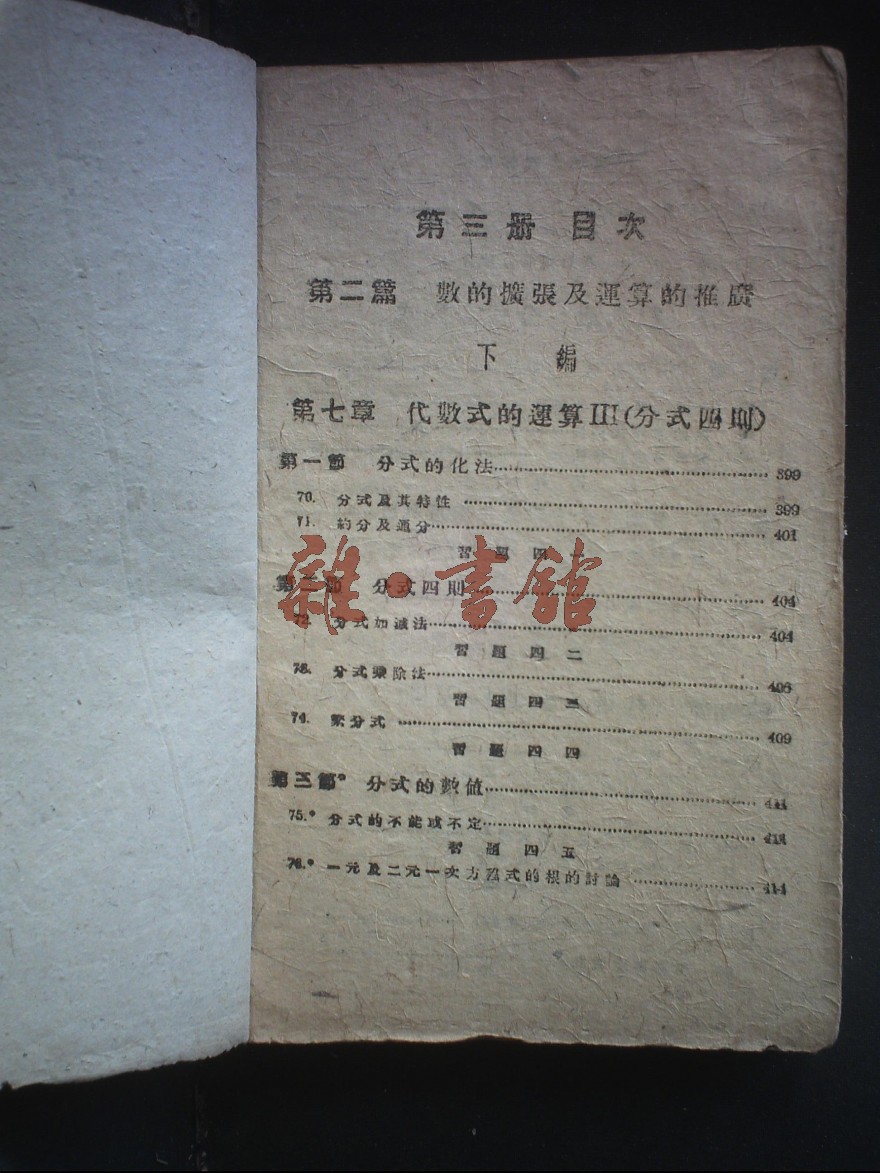 第三册 目次
第二篇 數的擴張及運算的推廣
下 編
第七章 代數式的運算III(分式四則)
第一節 分式的化法 399
70. 分式及其特性 399
71. 約分及通分 401
習題四一
第二節 分式四則 404
72. 分式加減法 404
習題四二
73. 分式乘除法 406
習題四三
74. 繁分式 409
習題四四
第三節* 分式的數值 411
75.* 分式的不能或不定 411
習題四五
76.* 一元及二元一次方程式的根的討論 414
雜·書館